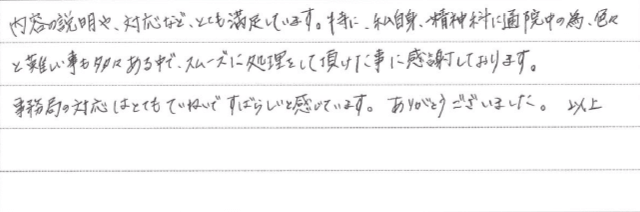 内容の説明や、対応など、とても満足しています。特に、私自身、精神科に通院中の為、色々
と難しい事も多々ある中で、スムーズに処理をして頂けた事に感謝しております。
事務局の対応はとてもていねいですばらしいと感じています。ありがとうございました。 以上